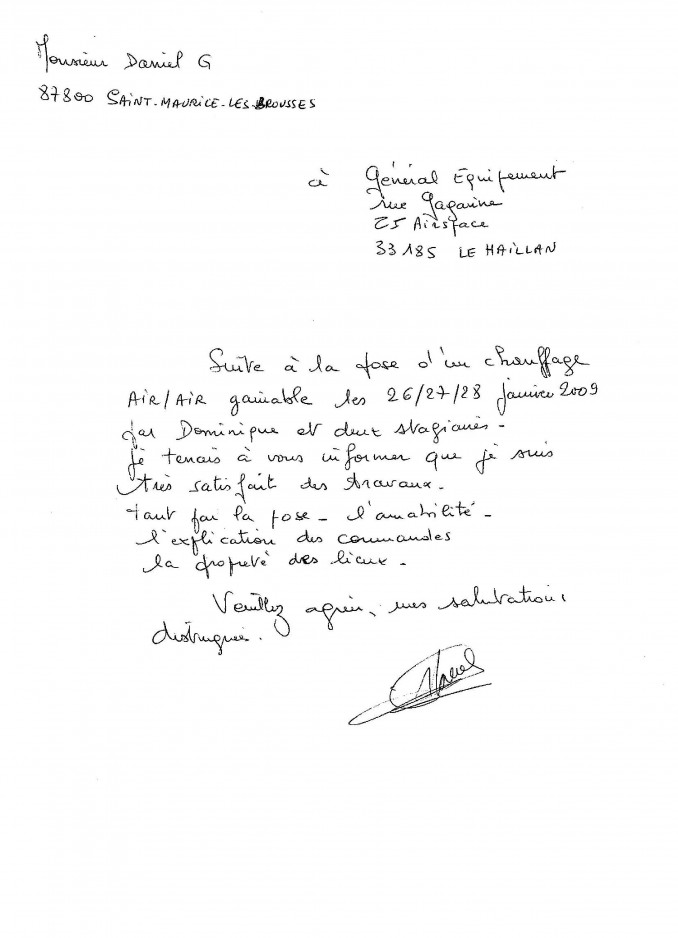 Monsieur Daniel G
87800 SAINT-MAURICE-LES-BROUSSES
à Général Equipement
rue Gagarine
25 Airspace
33185 LE HAILLAN
Suite à la pose d'un chauffage
AIR/AIR gainable les 26/27/28 janvier 2009
par Dominique et deux stagiaires -
je tenais à vous informer que je suis
très satisfait des travaux.
tant par la pose - l'amabilité -
l'explication des commandes
la propreté des lieux -
Veuillez agréer, mes salutations
distinguées.